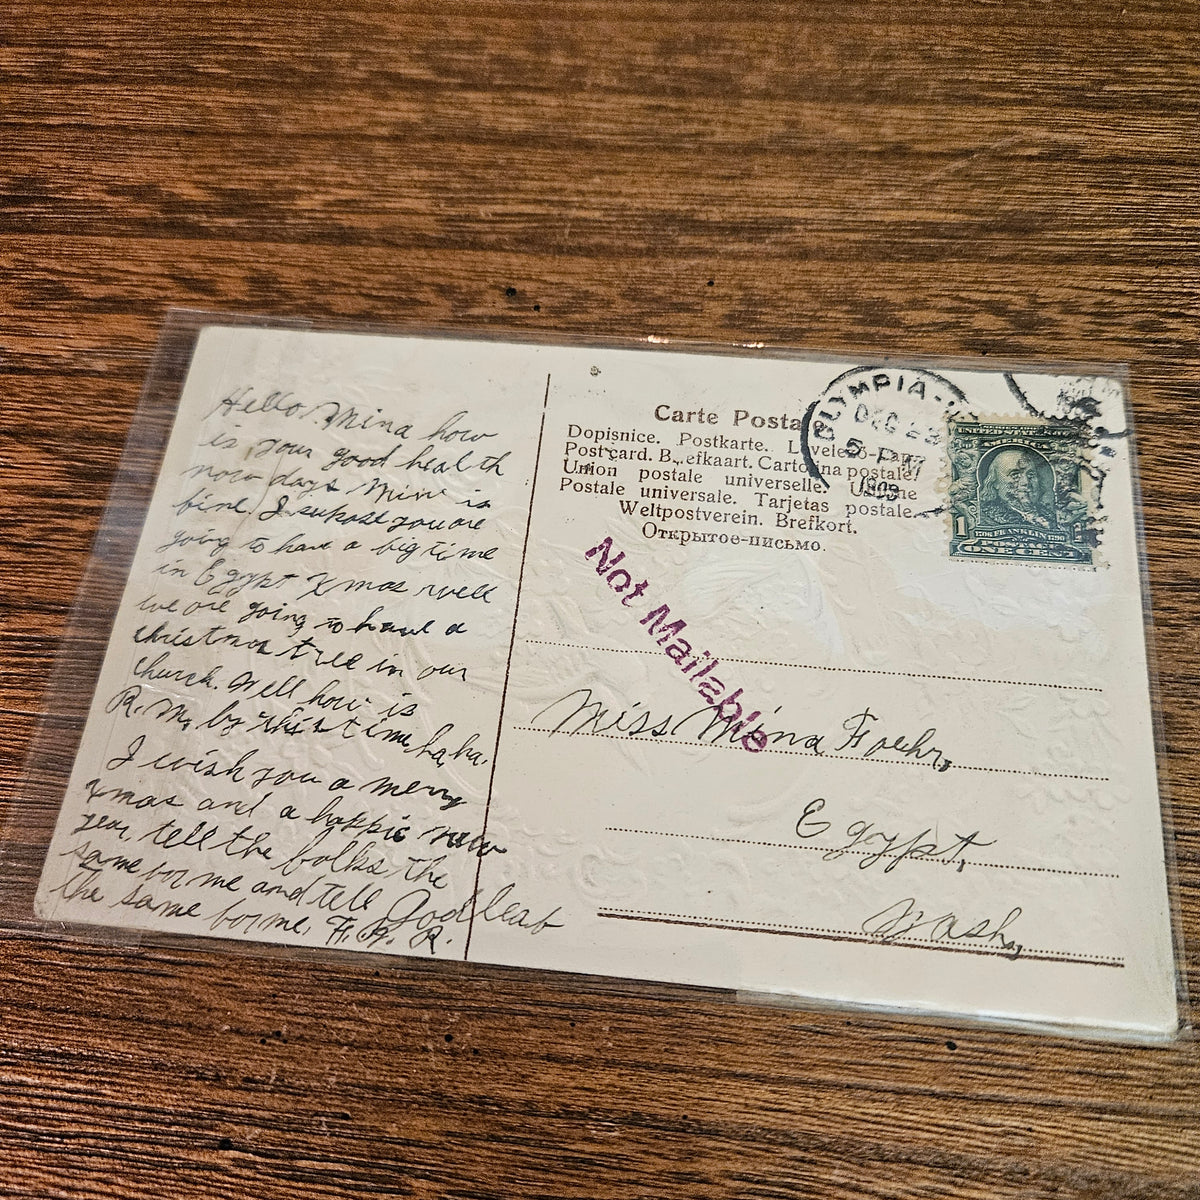 Hello Mina how
is your good health
now days Mine is
fine. I supose you are
going to have a big time
in Egypt Xmas well
we are going to have a
christmas tree in our
church. Well how is
R. M. by this time, ha ha.
I wish you a merry
xmas and a happie new
year, tell the folks the
same for me and tell Godleab
the same for me. F. R.
Carte Posta
Dopisnice. Postkarte.
Postcard. Briefkaart. Cartolina postale.
Union postale universelle.
Postale universale. Tarjetas postale.
Weltpostverein. Brefkort.
Открытое-письмо.
OLYMPIA
DEC 23
5-PM
UNITED STATES OF
AMERICA
1
1706 FRANKLIN 1790
POSTAGE
ONE CENT
Not Mailable
Miss Mina Foehr,
Egypt,
Wash,